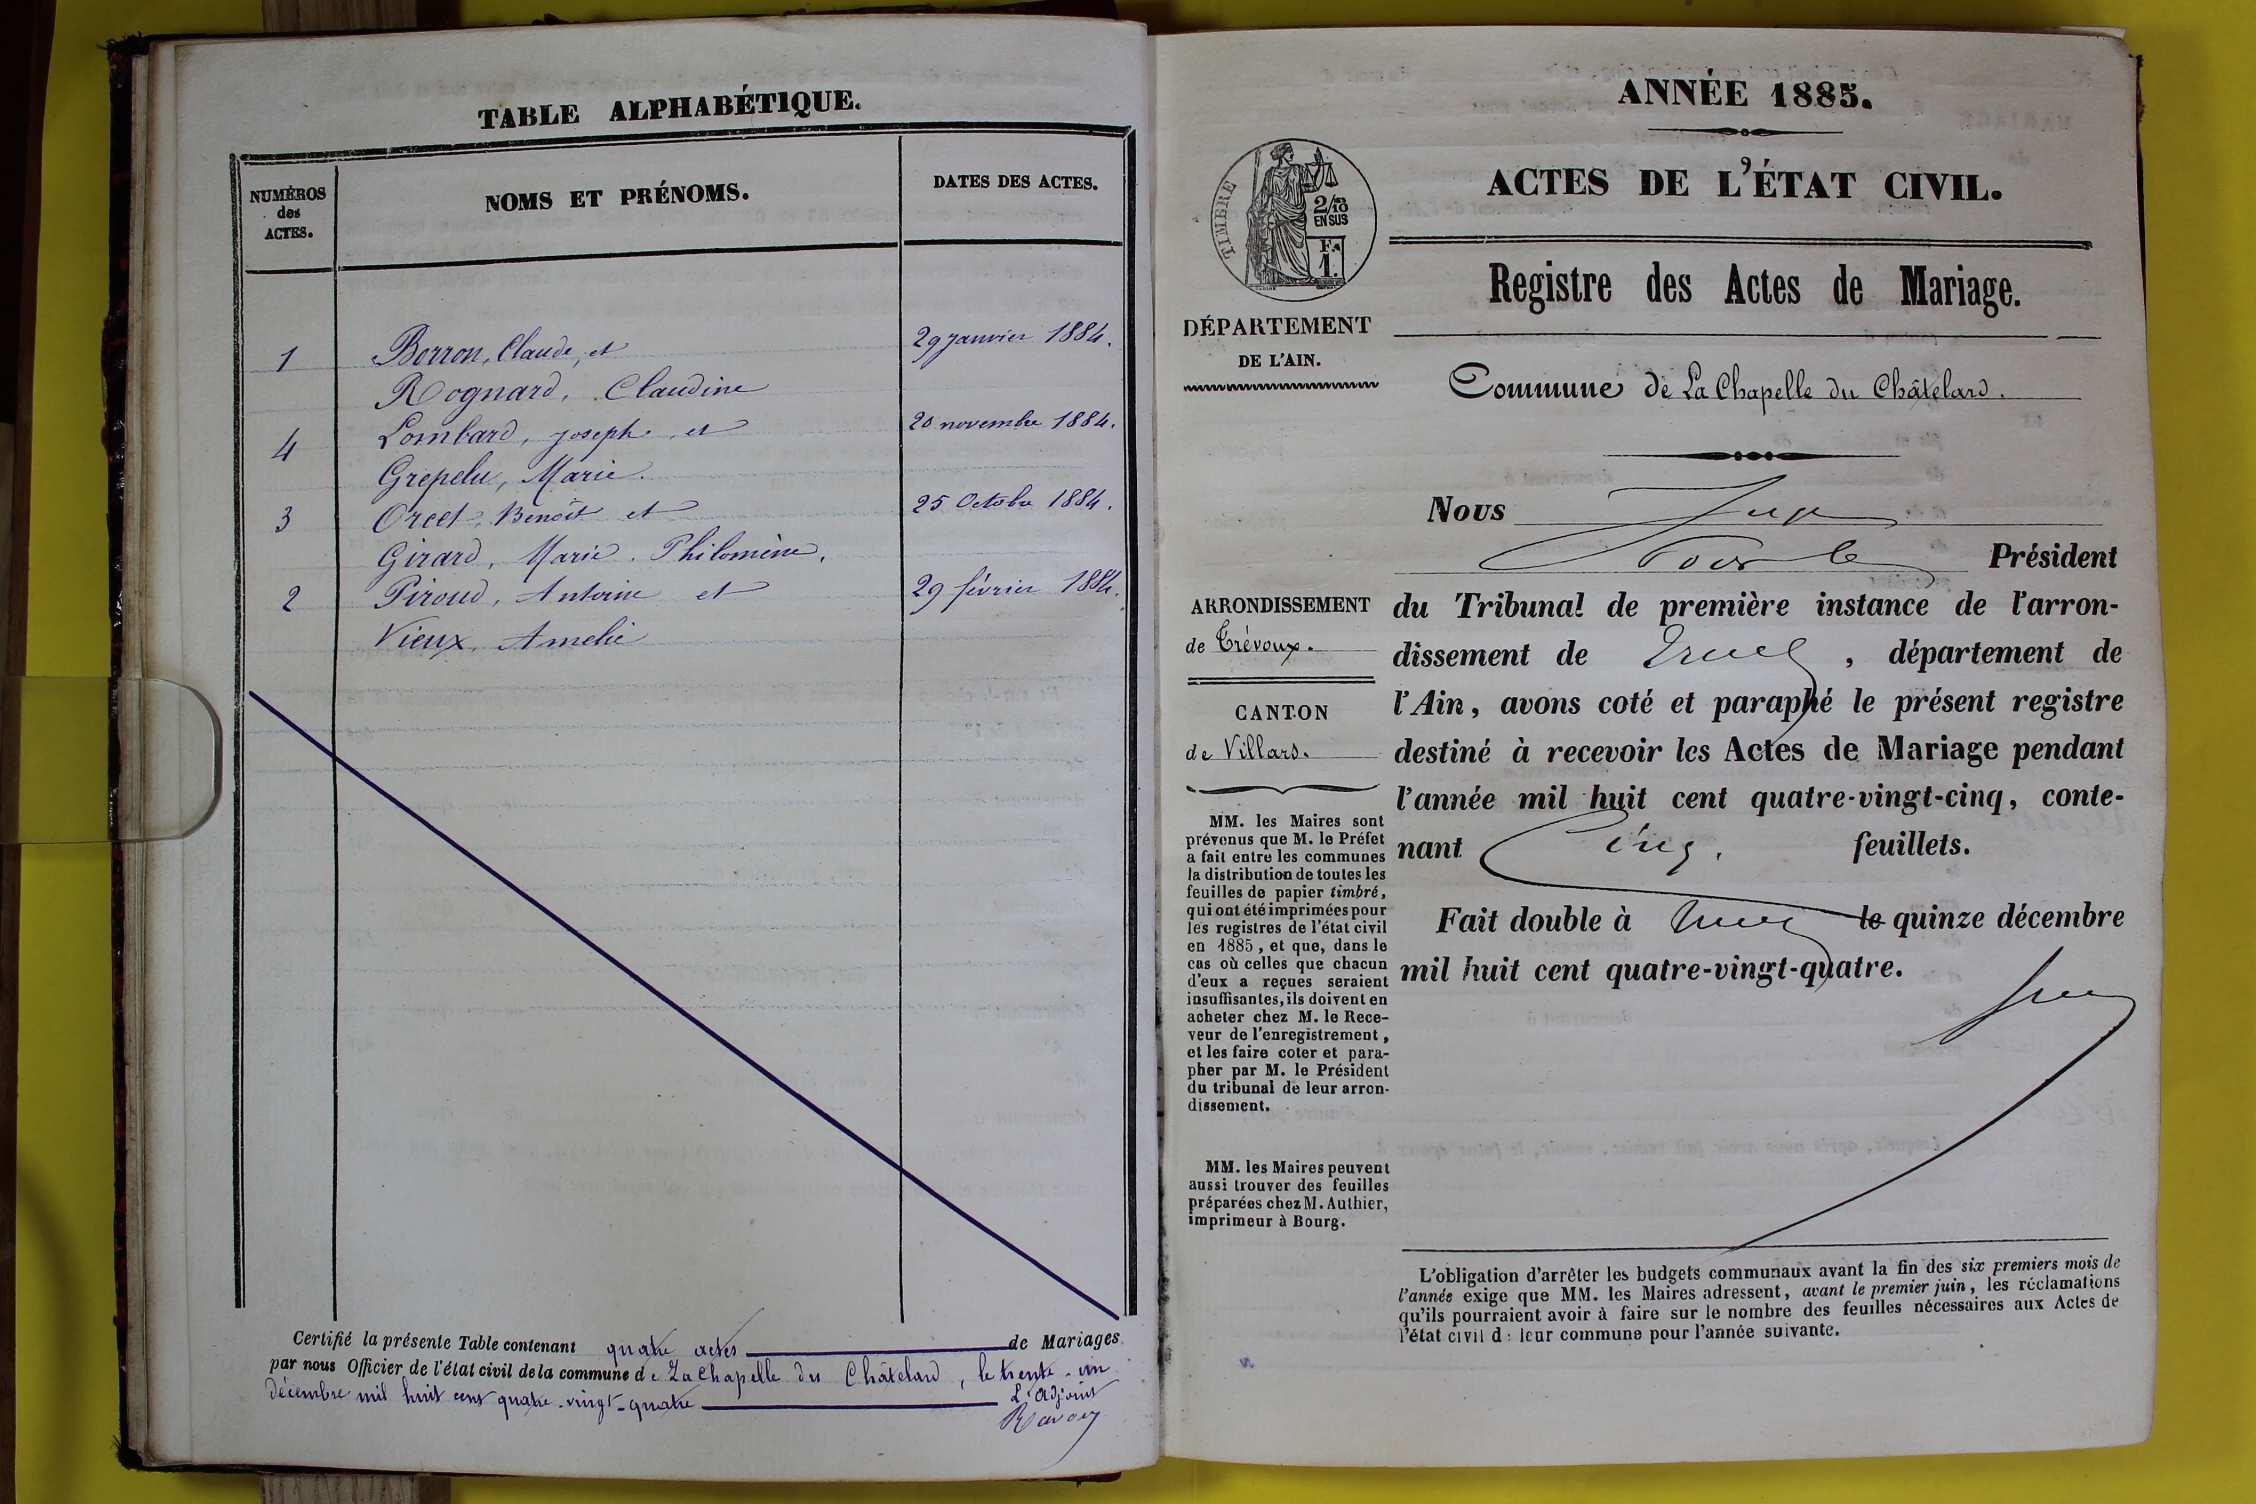 TABLE ALPHABÉTIQUE.
NUMÉROS
des
ACTES.
NOMS ET PRÉNOMS.
DATES DES ACTES.
1 Borron, Claude, et 29 janvier 1884.
Rognard, Claudine
4 Lombard, joseph et 20 novembre 1884.
Grepelu, Marie.
3 Orcet, Benoit et 25 Octobre 1884.
Girard, Marie Philomène.
2 Piroud, Antoine et 29 février 1884.
Vieux, Amelie
Certifié la présente Table contenant quatre actes de Mariages
par nous Officier de l'état civil de la commune de La Chapelle du Châtelard, le trente-un
décembre mil huit cent quatre-vingt-quatre
L'adjoint
ANNÉE 1885.
ACTES DE L'ÉTAT CIVIL.
TIMBRE
2/10
EN SUS
F.
1.
Registre des Actes de Mariage.
DÉPARTEMENT
DE L'AIN.
Commune de La Chapelle du Châtelard.
ARRONDISSEMENT
de Trévoux.
CANTON
de Villars.
MM. les Maires sont
prévenus que M. le Préfet
a fait entre les communes
la distribution de toutes les
feuilles de papier timbré,
qui ont été imprimées pour
les registres de l'état civil
en 1885, et que, dans le
cas où celles que chacun
d'eux a reçues seraient
insuffisantes, ils doivent en
acheter chez M. le Rece-
veur de l'enregistrement,
et les faire coter et para-
pher par M. le Président
du tribunal de leur arron-
dissement.
MM. les Maires peuvent
aussi trouver des feuilles
préparées chez M. Authier,
imprimeur à Bourg.
Nous
Président
du Tribunal de première instance de l'arron-
dissement de , département de
l'Ain, avons coté et paraphé le présent registre
destiné à recevoir les Actes de Mariage pendant
l'année mil huit cent quatre-vingt-cinq, conte-
nant Cinq. feuillets.
Fait double à le quinze décembre
mil huit cent quatre-vingt-quatre.
L'obligation d'arrêter les budgets communaux avant la fin des six premiers mois de
l'année exige que MM. les Maires adressent, avant le premier juin, les réclamations
qu'ils pourraient avoir à faire sur le nombre des feuilles nécessaires aux Actes de
l'état civil d: leur commune pour l'année suivante.